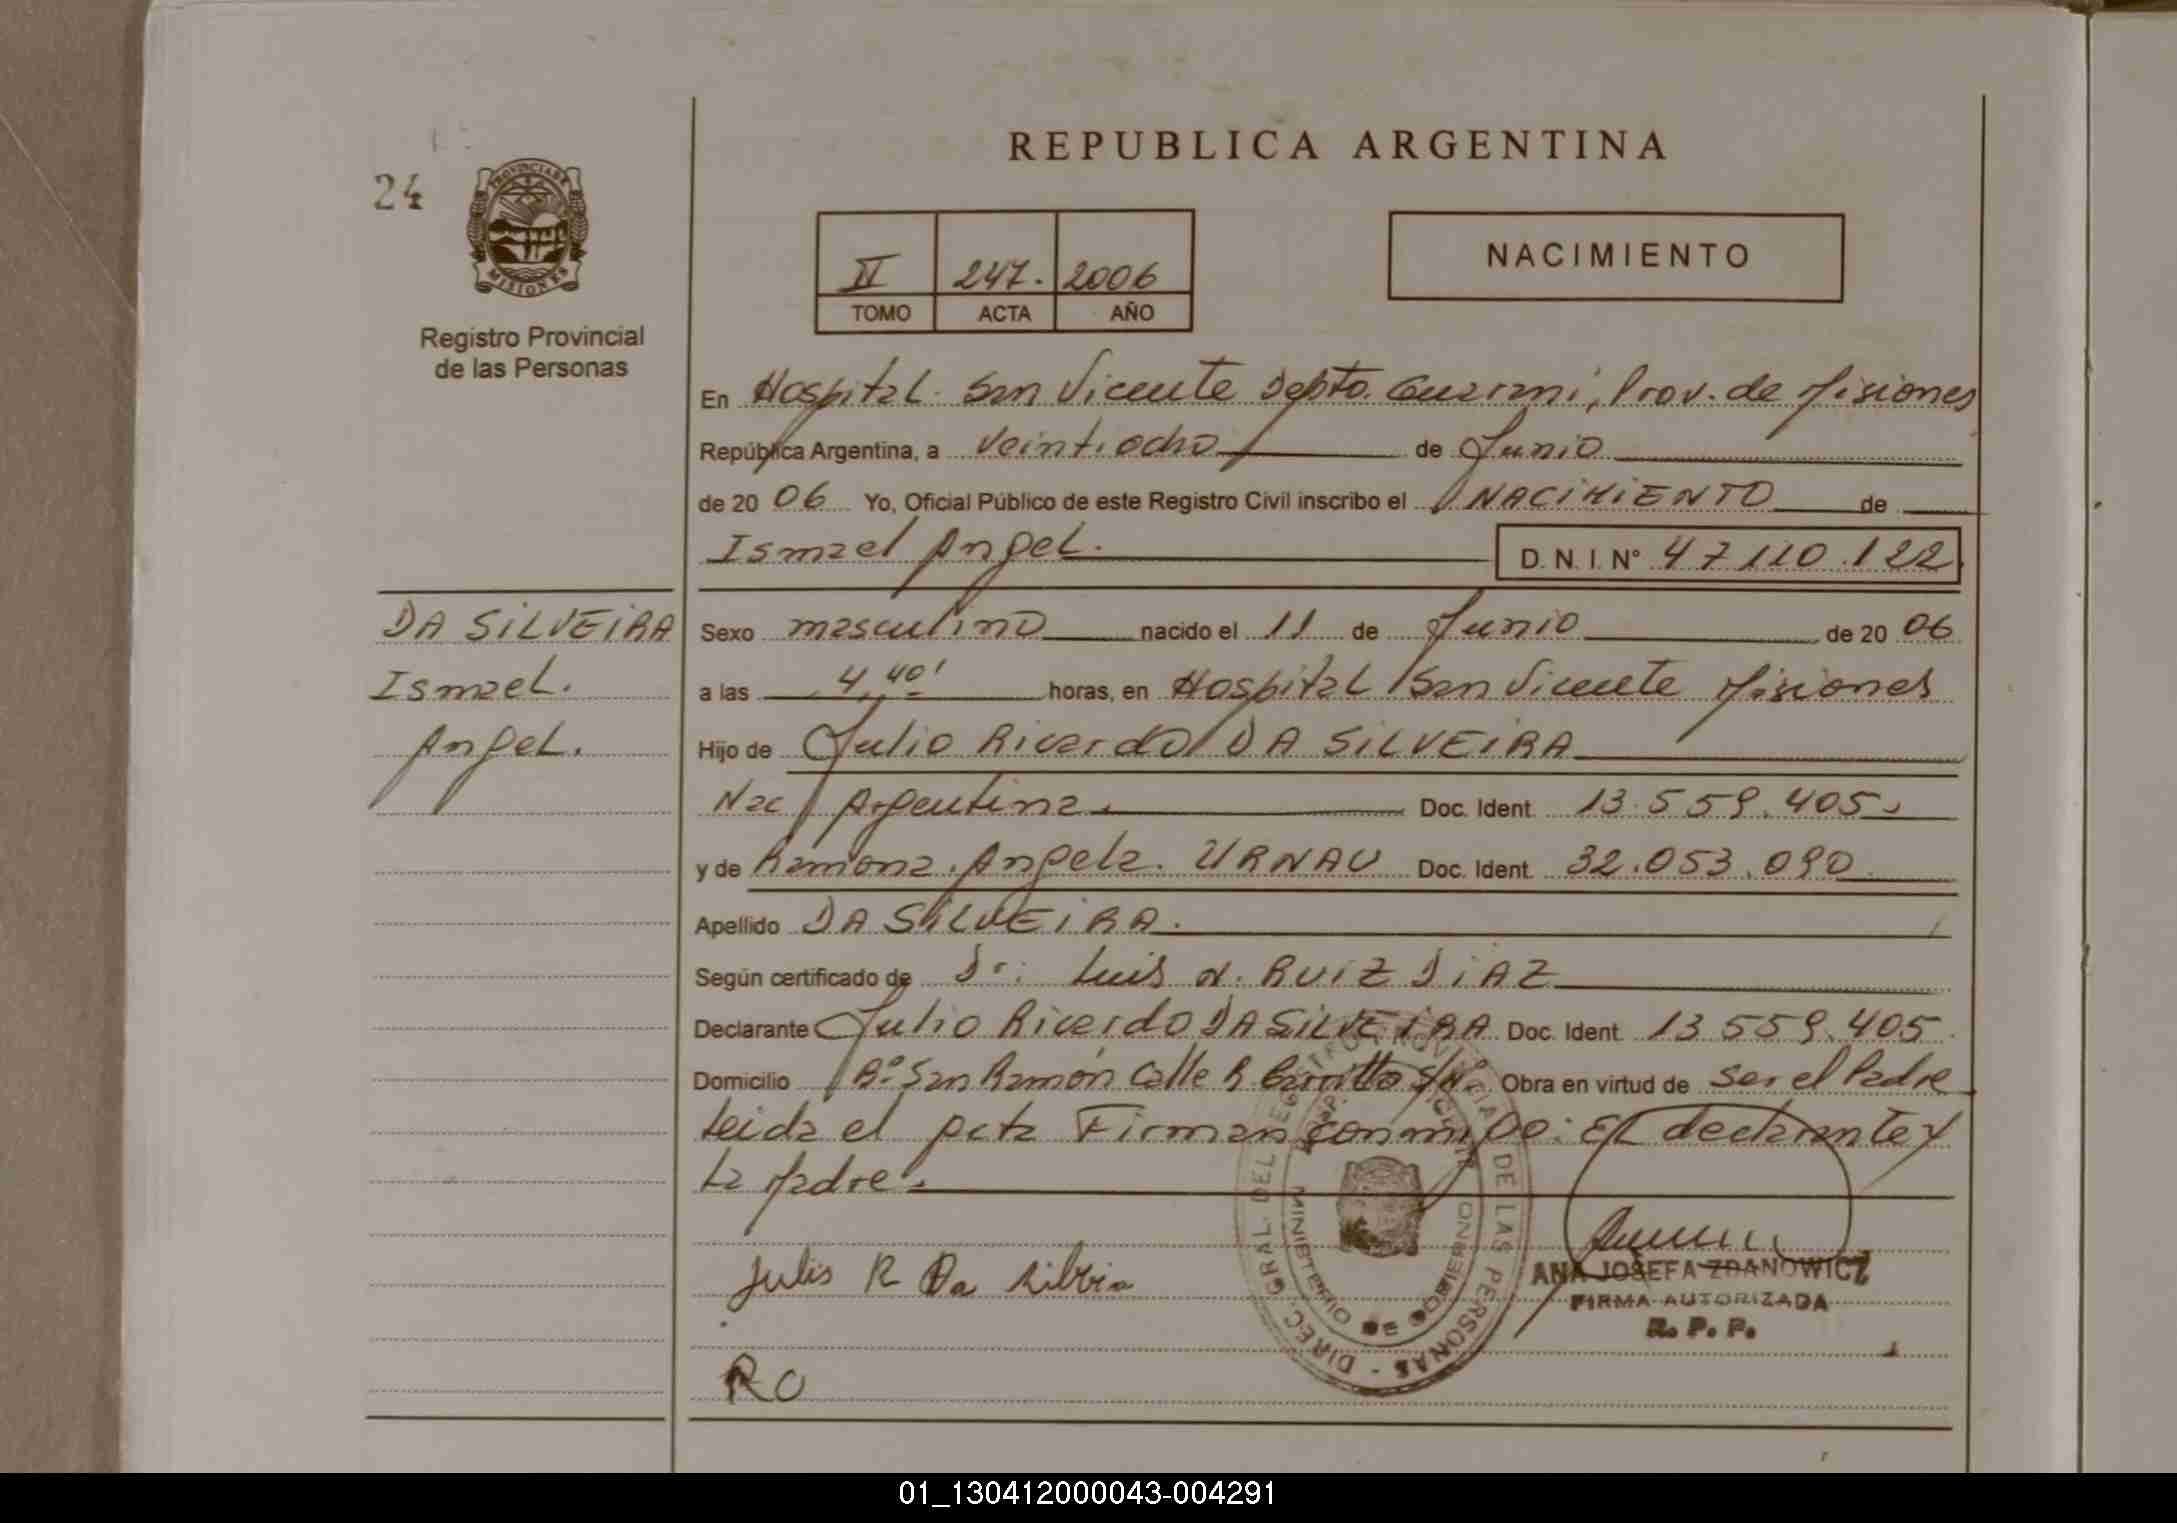 REPUBLICA ARGENTINA
24
PROVINCIA DE
MISIONES
Registro Provincial
de las Personas
II 247. 2006
TOMO ACTA AÑO
NACIMIENTO
En Hospital. San Vicente Depto. Guarani, Prov. de Misiones
República Argentina, a veintiocho de Junio
de 20 06 Yo, Oficial Público de este Registro Civil inscribo el NACIMIENTO de
Ismael Angel. D. N. I. Nº 47110.122
DA SILVEIRA
Ismael.
Angel.
Sexo masculino nacido el 11 de Junio de 20 06
a las 4,40' horas, en Hospital San Vicente Misiones
Hijo de Julio Ricardo DA SILVEIRA
Nac Argentina. Doc. Ident. 13.559.405
y de Ramona. Angela. URNAU Doc. Ident. 32.053.090
Apellido DA SILVEIRA.
Según certificado de Dr: Luis N. RUIZ DIAZ
Declarante Julio Ricardo DA SILVEIRA Doc. Ident. 13.559.405
Domicilio Bº San Ramón Calle R S/Nº Obra en virtud de ser el Padre
Leida el acta Firman conmigo: El declarante y
La Madre.
Julis R Da
ANA JOSEFA ZDANOWICZ
FIRMA AUTORIZADA
R. P. P.
RO
DIREC. GRAL. DEL REGISTRO PROVINCIAL DE LAS PERSONAS
MINISTERIO DE GOBIERNO
01_130412000043-004291